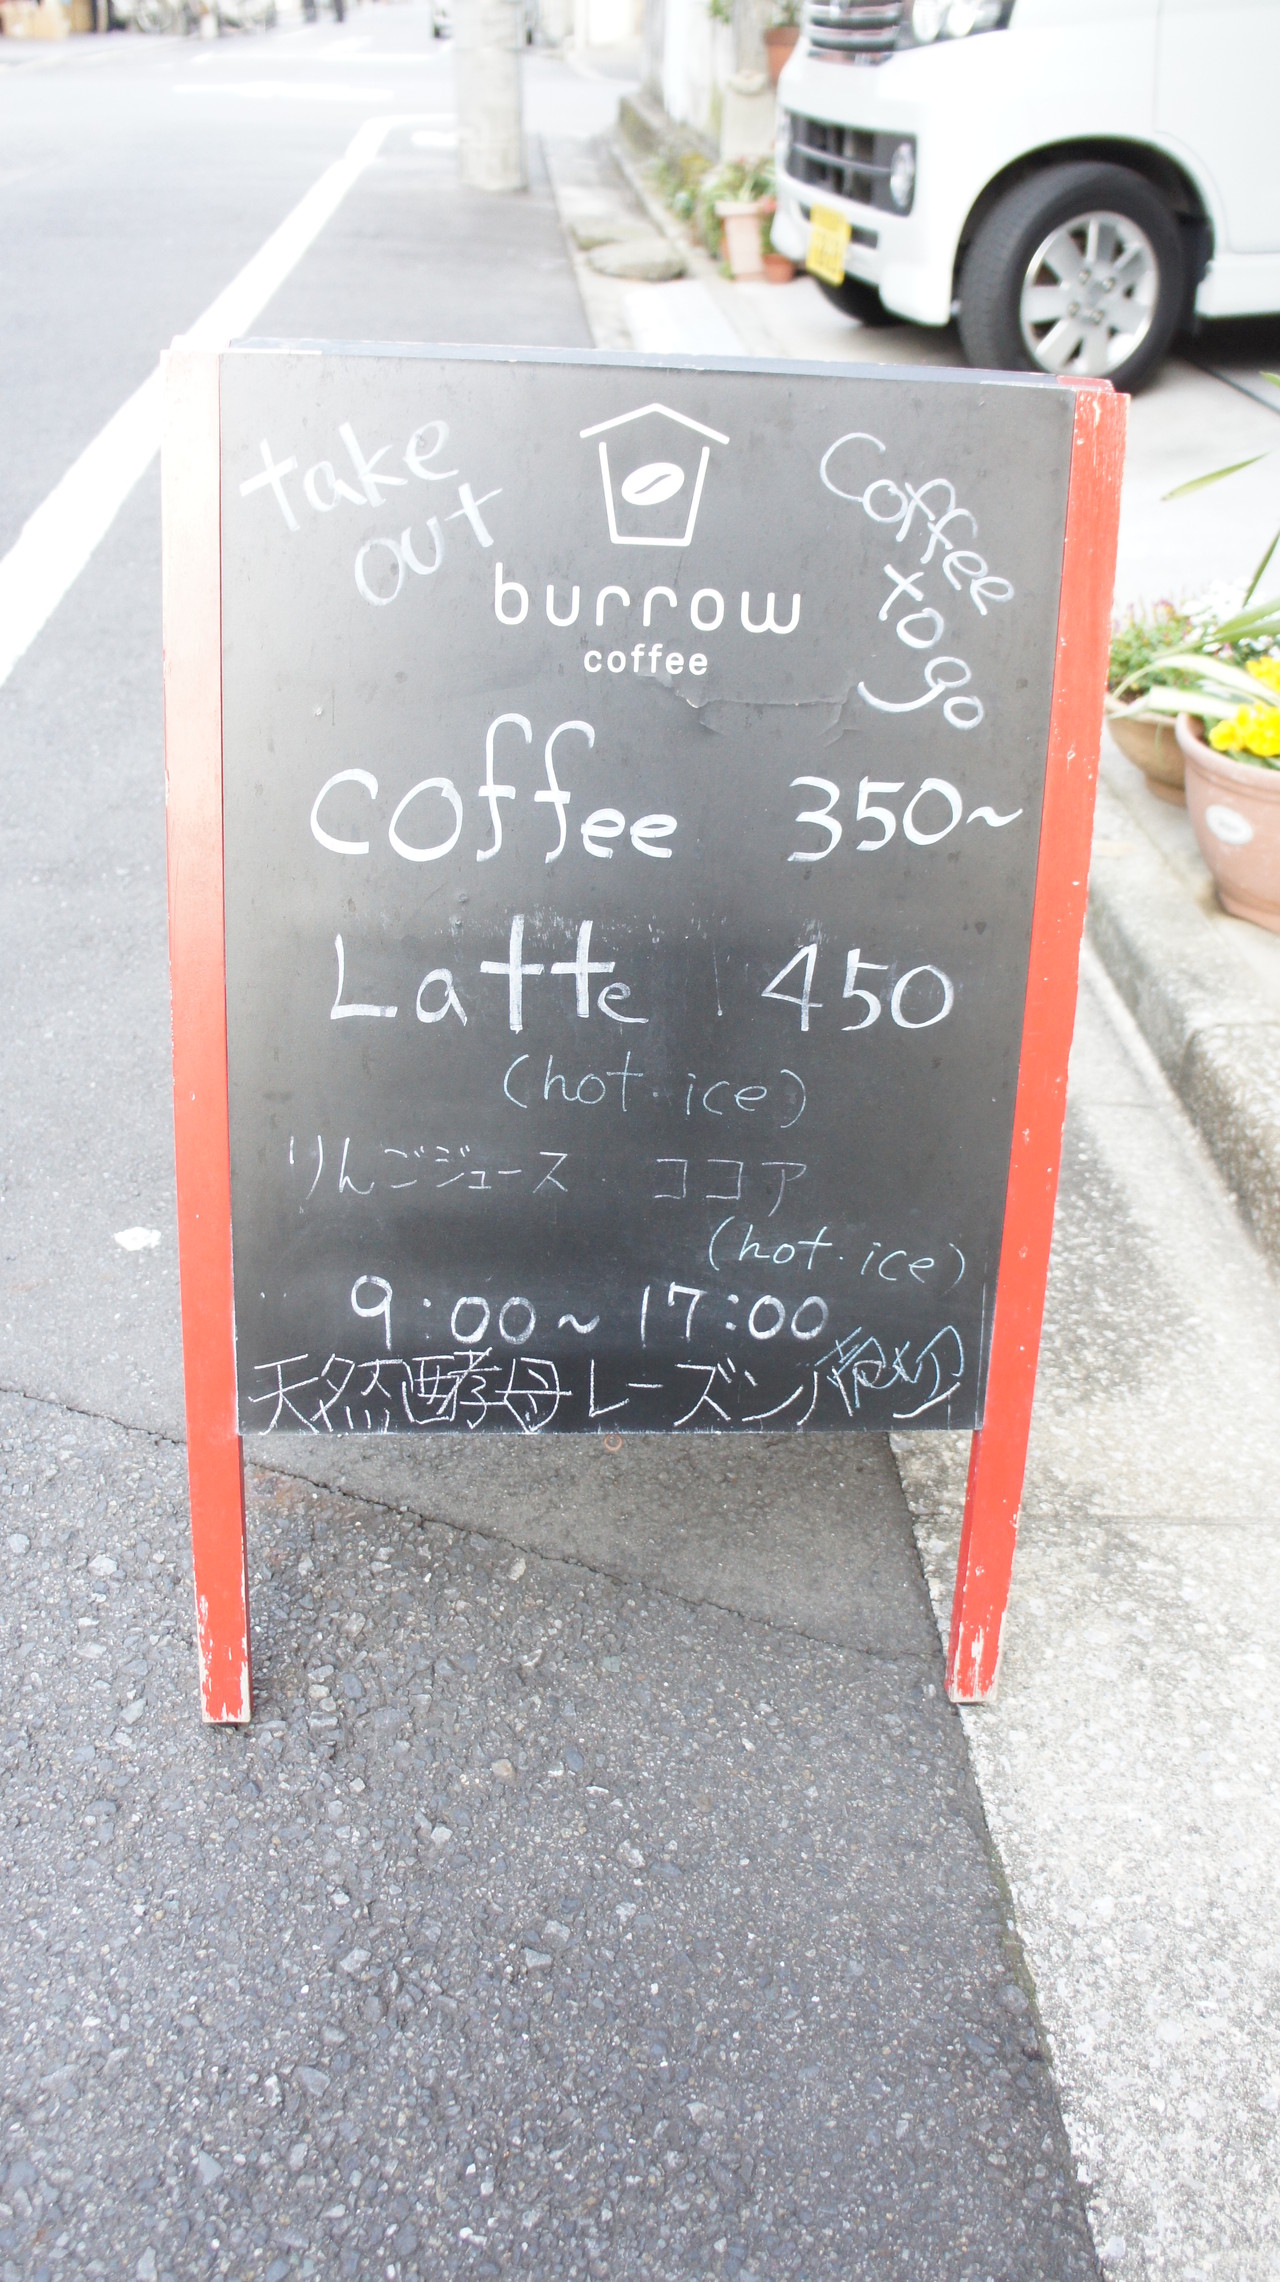 take
out
Coffee
to go
burrow
coffee
coffee 350~
Latte 450
(hot ice)
りんごジュース ココア
(hot・ice)
9:00~17:00
天然酵母レーズンパン